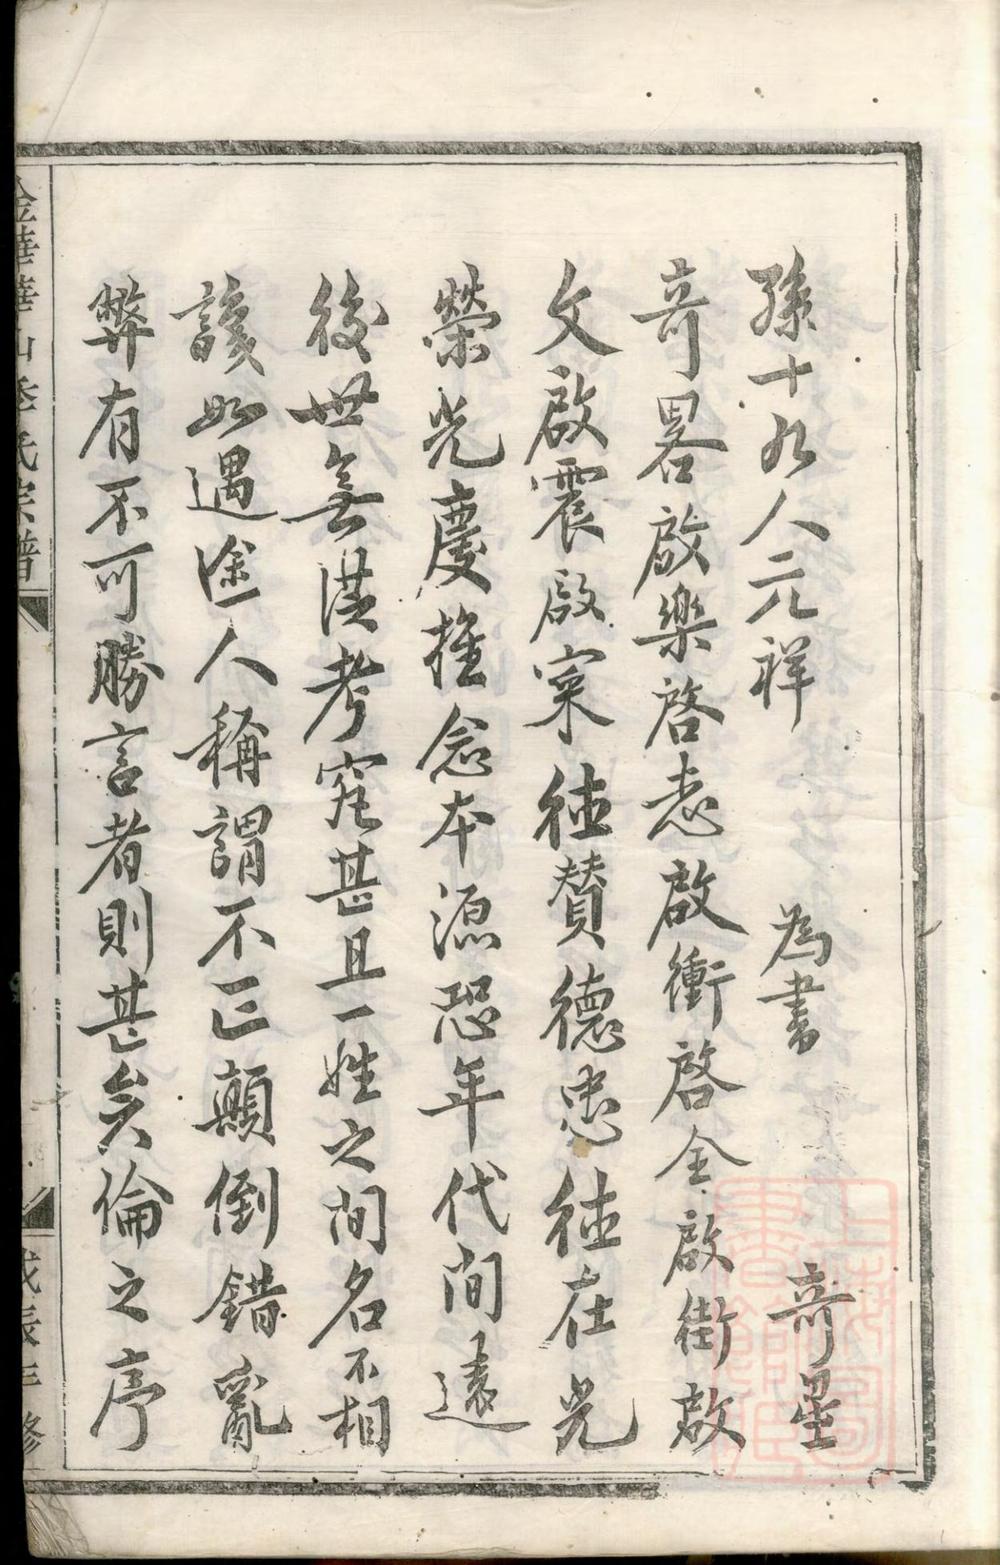 孫十九人元祥 為書 奇星
奇畧啟樂啓志啟衝啓全啟街啟
文啟震啟寀徳賛德忠徳在光
榮光慶推念本源恐年代間遠
後世無從考究甚且一姓之間名不相
識如遇途人稱謂不正顛倒錯亂
弊有不可勝言者則甚矣倫之序
金華 山 氏宗譜
戊辰年 修
上海圖書館藏